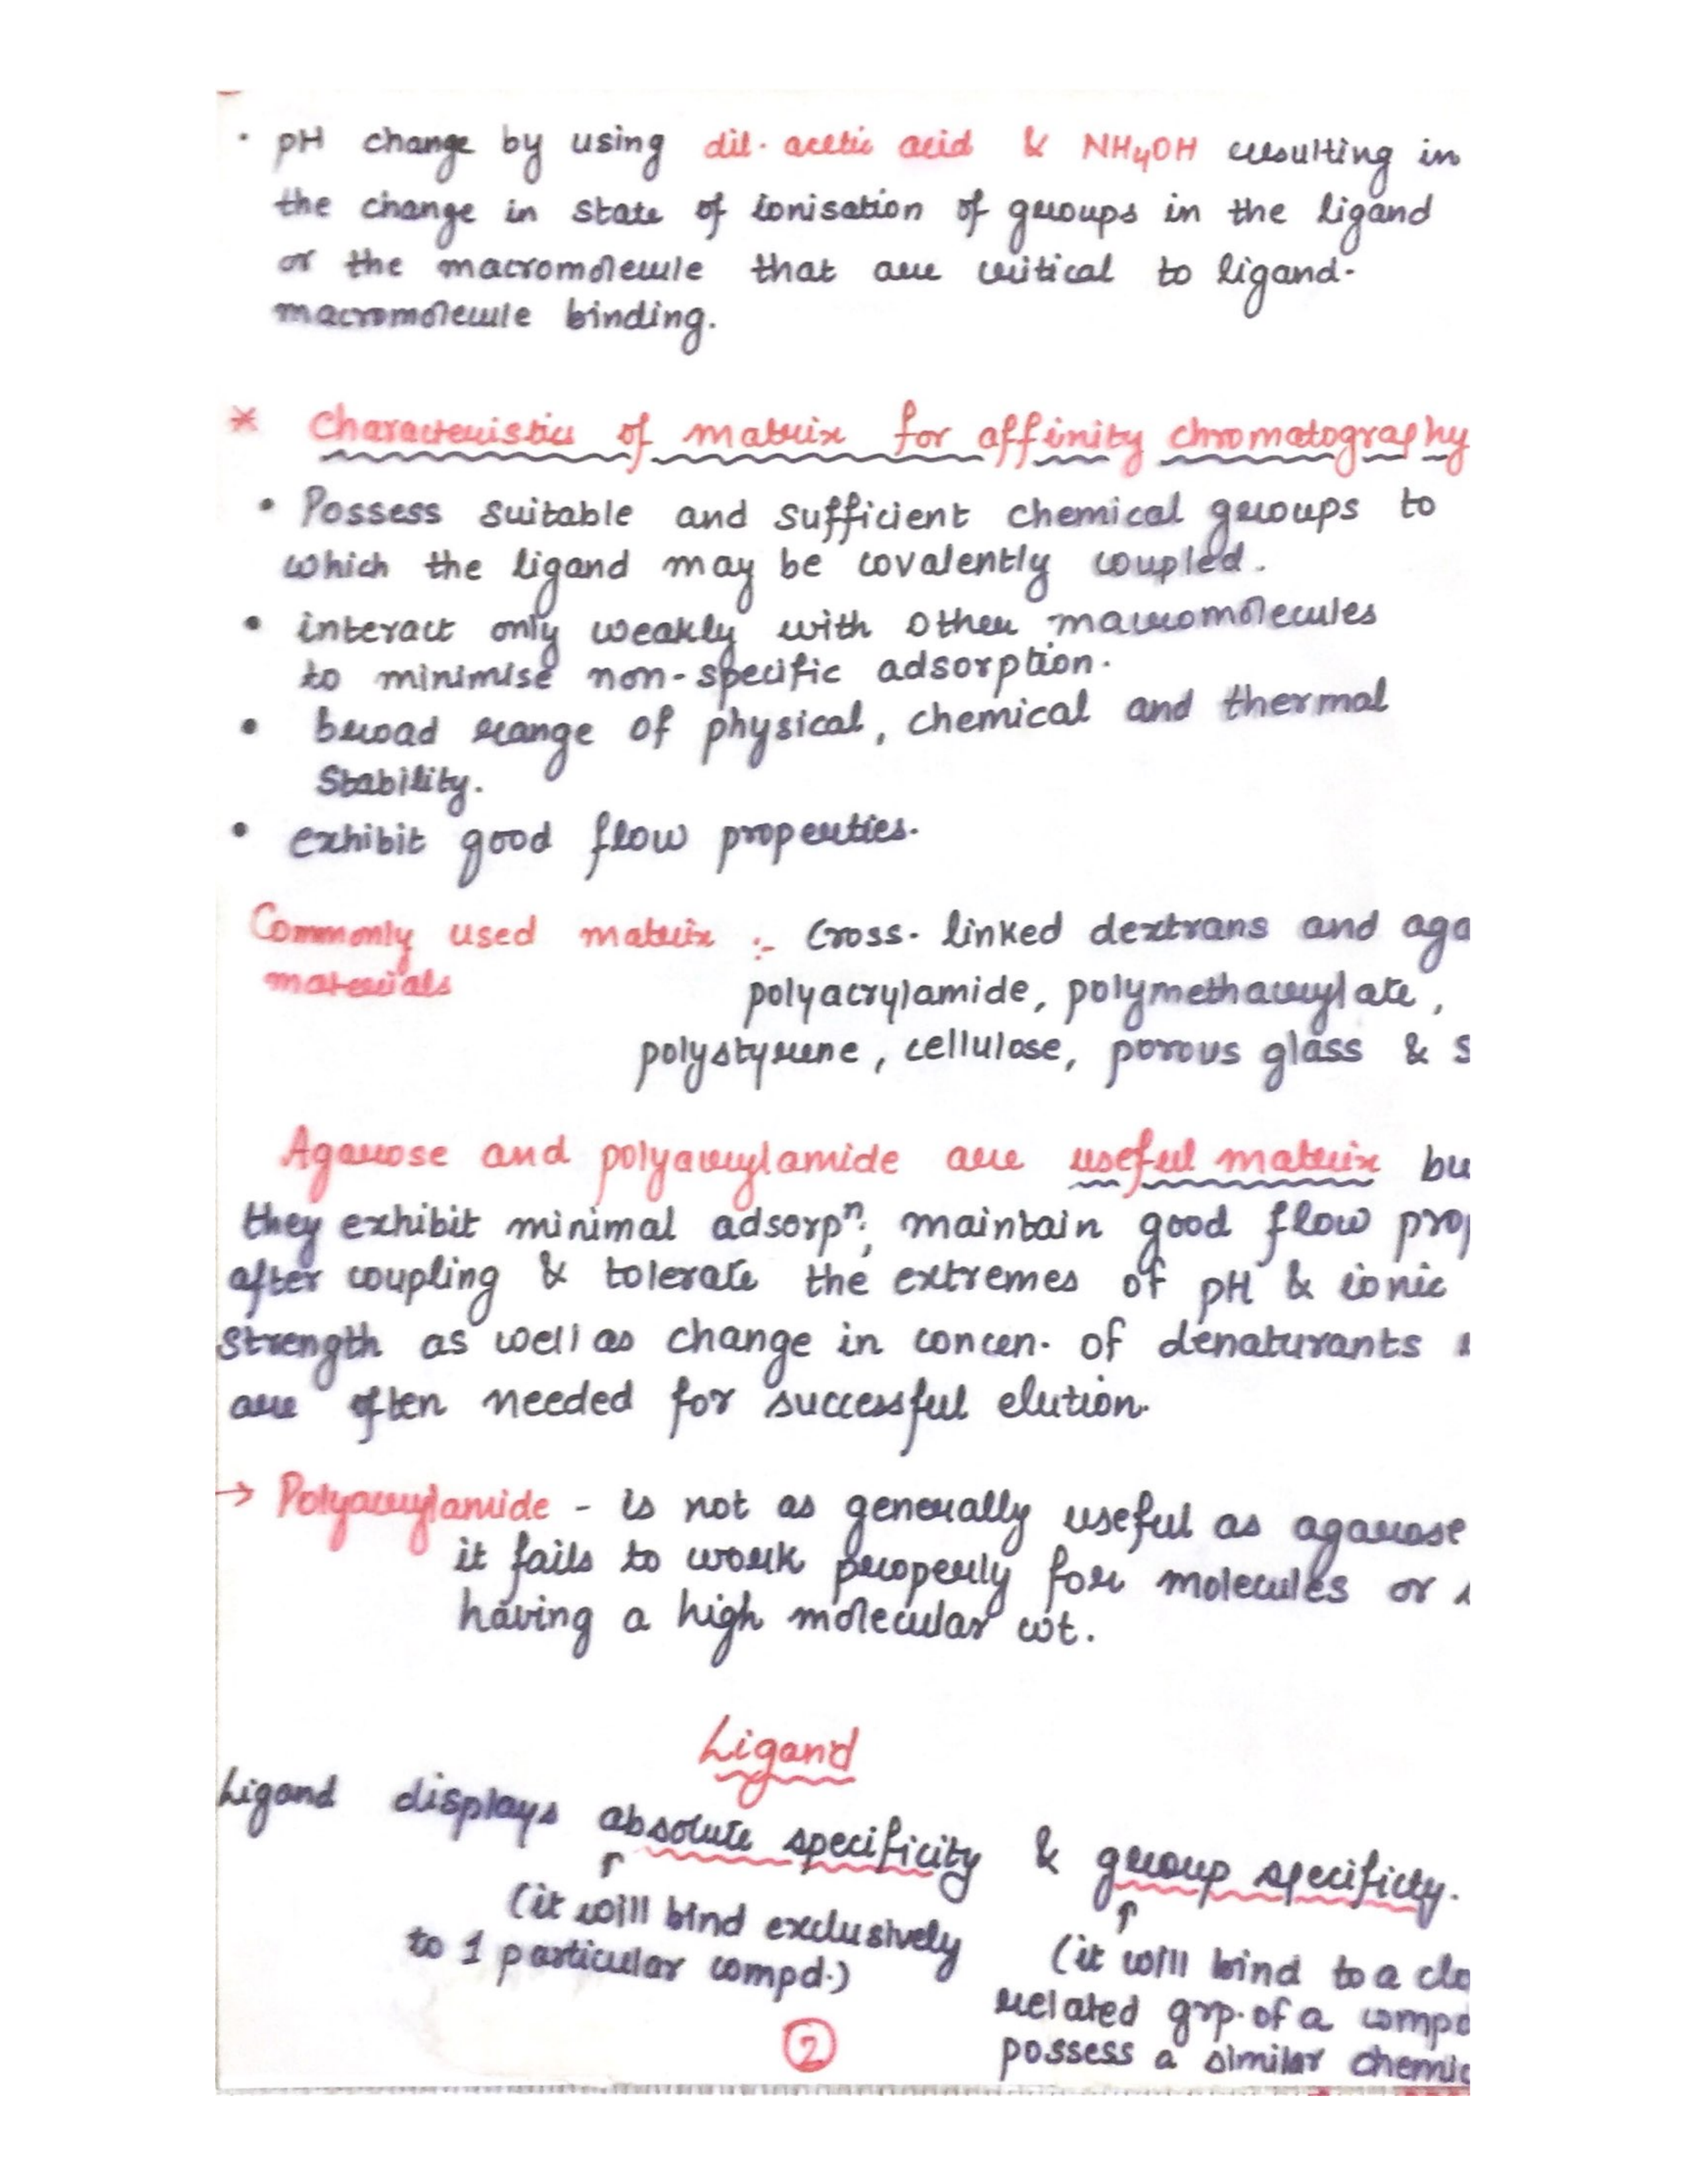 • pH change by using dil. acetic acid & NH4OH resulting in
the change in state of ionisation of groups in the ligand
or the macromolecule that are critical to ligand-
macromolecule binding.
* Characteristics of matrix for affinity chromatography
• Possess suitable and sufficient chemical groups to
which the ligand may be covalently coupled.
• interact only weakly with other macromolecules
to minimise non-specific adsorption.
• broad range of physical, chemical and thermal
stability.
• exhibit good flow properties.
Commonly used matrix :- Cross-linked dextrans and aga
materials
polyacrylamide, polymethacrylate,
polystyrene, cellulose, porous glass & s
Agarose and polyacrylamide are useful matrix bu
they exhibit minimal adsorpⁿ, maintain good flow prop
after coupling & tolerate the extremes of pH & ionic
strength as well as change in concen. of denaturants
are often needed for successful elution.
→ Polyacrylamide - is not as generally useful as agarose
it fails to work properly for molecules or
having a high molecular wt.
Ligand
Ligand displays absolute specificity & group specificity.
↑ ↑
(it will bind exclusively
to 1 particular compd.)
(it will bind to a clo
related grp. of a compd
possess a similar chemic
2